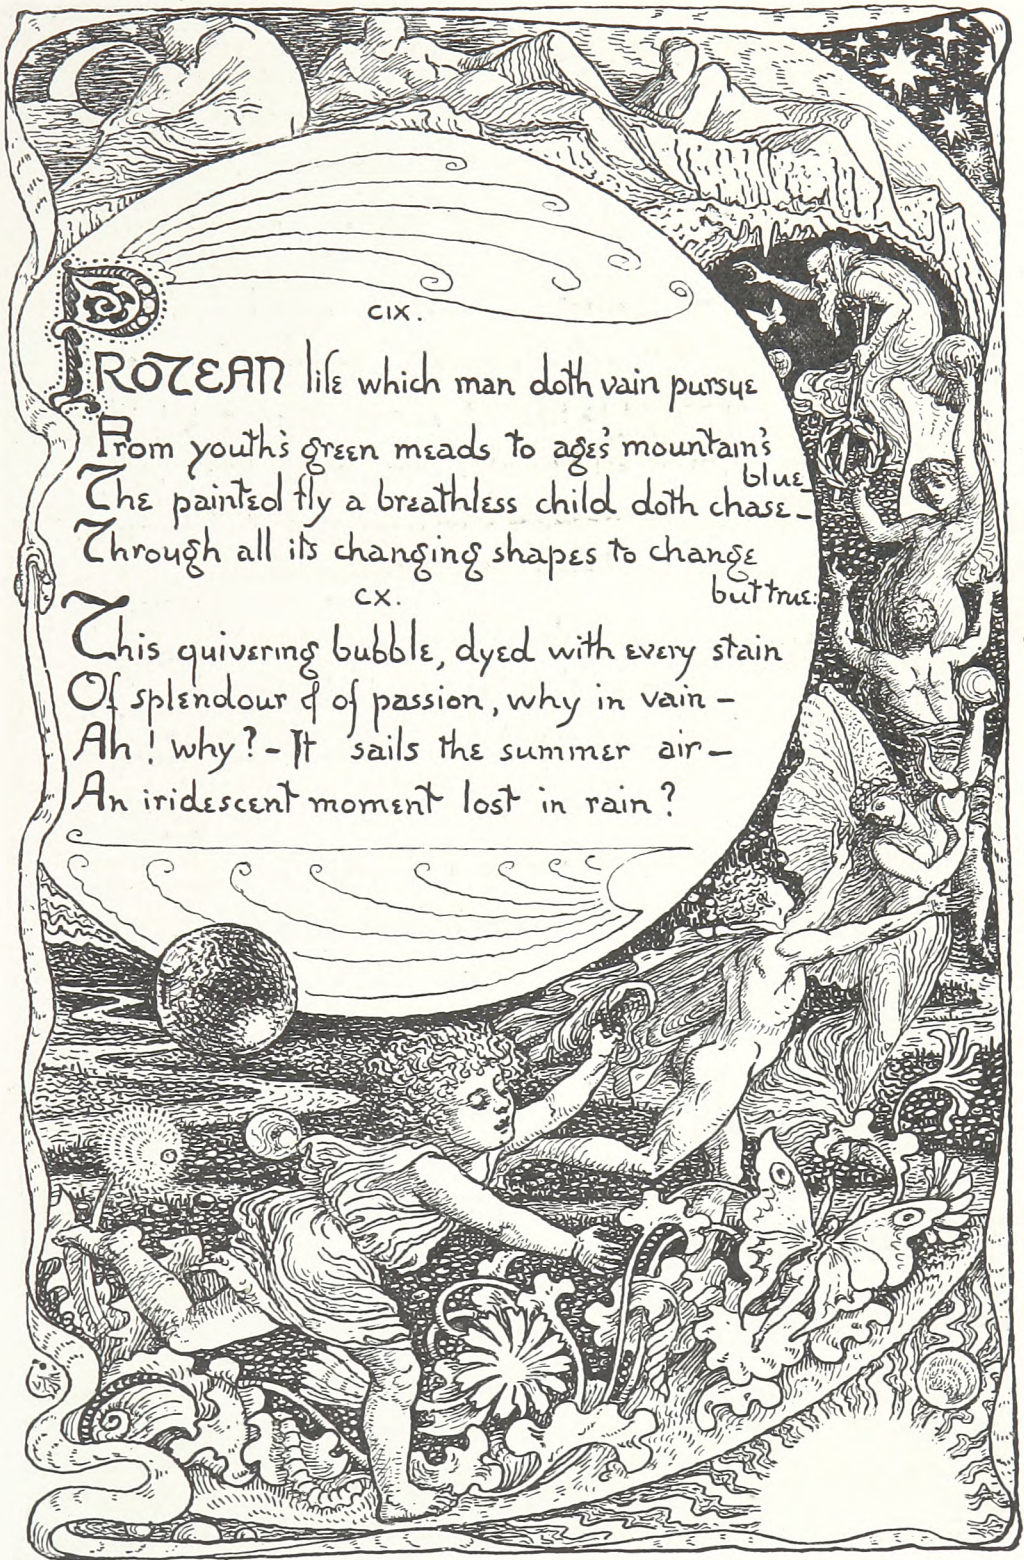 CIX.
PROTEAN life which man doth vain pursue
From youth's green meads to ages' mountain's
blue_
The painted fly a breathless child doth chase_
Through all its changing shapes to change
but true:
CX.
This quivering bubble, dyed with every stain
Of splendour & of passion, why in vain –
Ah! why? – It sails the summer air –
An iridescent moment lost in rain?